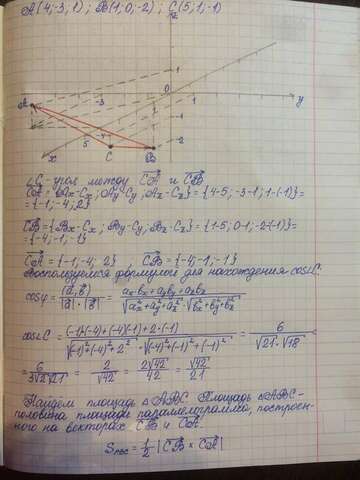 A(4;-3;1); B(1;0;-2); C(5;1;-1)
z
1
A
-3
-1
0
1
y
4
5
-2
x
C
B
∠C - угол между C͞A и C͞B
C͞A = {Ax-Cx; Ay-Cy; Az-Cz} = {4-5; -3-1; 1-(-1)} =
= {-1; -4; 2}
C͞B = {Bx-Cx; By-Cy; Bz-Cz} = {1-5; 0-1; -2-(-1)} =
= {-4; -1; -1}
C͞A = {-1; -4; 2}, C͞B = {-4; -1; -1}
Воспользуемся формулой для нахождения cos∠C:
cosφ = (a⃗, b⃗) / (|a⃗|·|b⃗|) = (ax·bx + ay·by + az·bz) / (√(ax²+ay²+az²) · √(bx²+by²+bz²))
cos∠C = ((-1)·(-4)+(-4)·(-1)+2·(-1)) / (√((-1)²+(-4)²+2²) · √((-4)²+(-1)²+(-1)²)) = 6 / (√21·√18) =
= 6 / (3√2√21) = 2/√42 = 2√42/42 = √42/21
Найдем площадь △ABC. Площадь △ABC -
половина площади параллелограмма, построен-
ного на векторах C͞B и C͞A.
S_ABC = 1/2 |C͞B × C͞A|